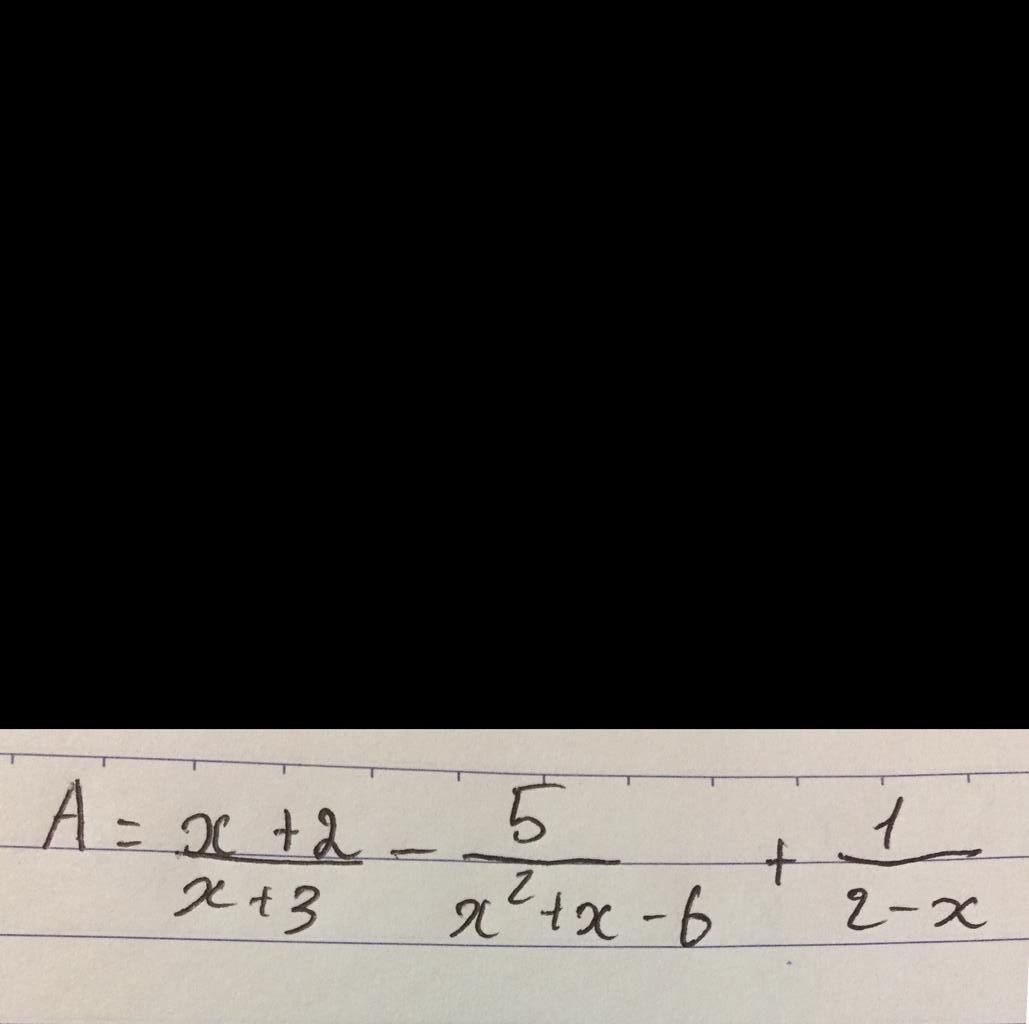 A = \frac{x+2}{x+3} - \frac{5}{x^2+x-6} + \frac{1}{2-x}